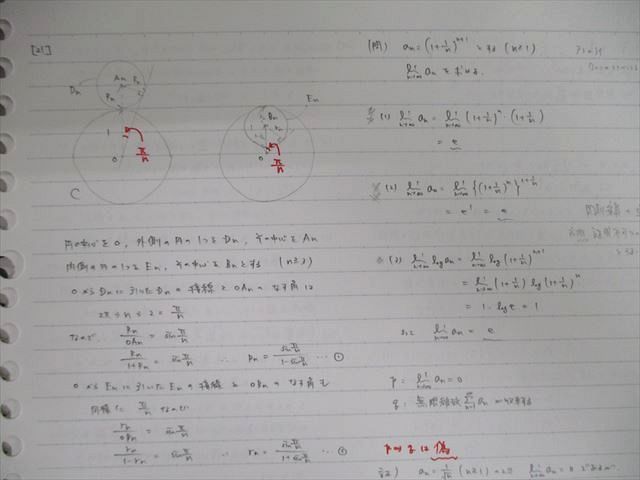 [21]
Dn
An
Pn
1
0
π/n
C
En
Bn
rn
1
0
π/n
円の中心を0, 外側の円の1つを Dn, その中心を An
内側の円の1つを En, その中心を Bn とする (n≧3)
0から Dn に引いた Dn の接線と OAn のなす角は
2π÷n÷2 = π/n
なので Pn/OAn = sin π/n
Pn/(1+Pn) = sin π/n ∴ Pn = sin π/n / (1 - sin π/n) … ①
0から En に引いた En の接線と OBn のなす角も
同様に π/n なので
rn/OBn = sin π/n
rn/(1-rn) = sin π/n ∴ rn = sin π/n / (1 + sin π/n) … ②
(問) an = (1+1/n)^(n+1) とする (n≧1)
lim n→∞ an を求めよ.
(1) lim n→∞ an = lim n→∞ (1+1/n)^n · (1+1/n)
= e
(2) lim n→∞ an = lim n→∞ {(1+1/n)^n}^(1+1/n)
= e^1 = e
(3) lim n→∞ log an = lim n→∞ log (1+1/n)^(n+1)
= lim n→∞ (1+1/n) log (1+1/n)^n
= 1 · log e = 1
lim n→∞ an = e
p: lim n→∞ an = 0
q: 無限級数 Σ an
p→q は偽
an = 1/√n (n≧1) lim n→∞ an = 0